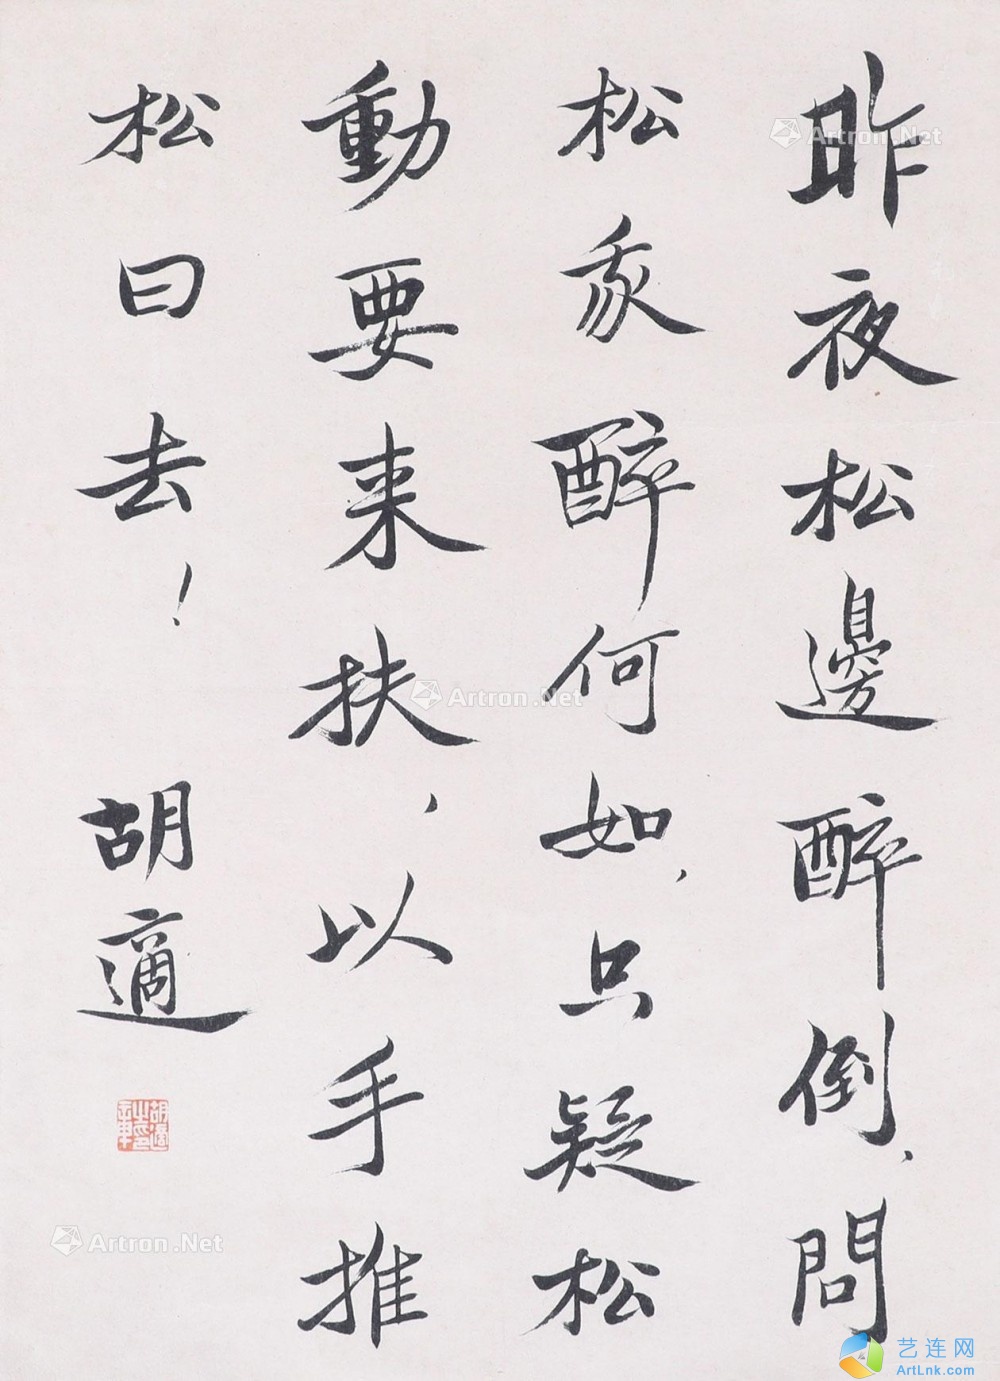 昨夜松邊醉倒、問
松我醉何如、只疑松
動要来扶、以手推
松曰去！
胡適
胡適之鉨
Artron.Net
Artron.Net
Artron.Net
艺连网
ArtLnk.com